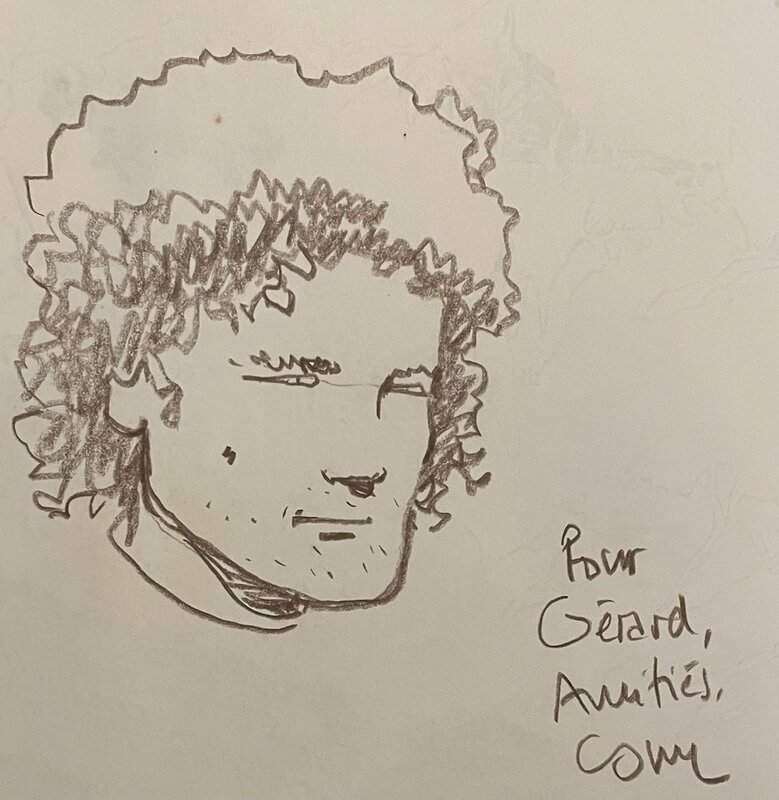 Pour
Gérard,
Amitiés.
Comès